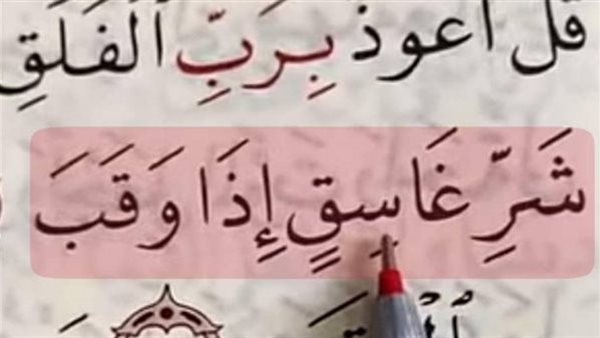 قُلْ أَعُوذُ بِرَبِّ ٱلْفَلَقِ
شَرِّ غَاسِقٍ إِذَا وَقَبَ